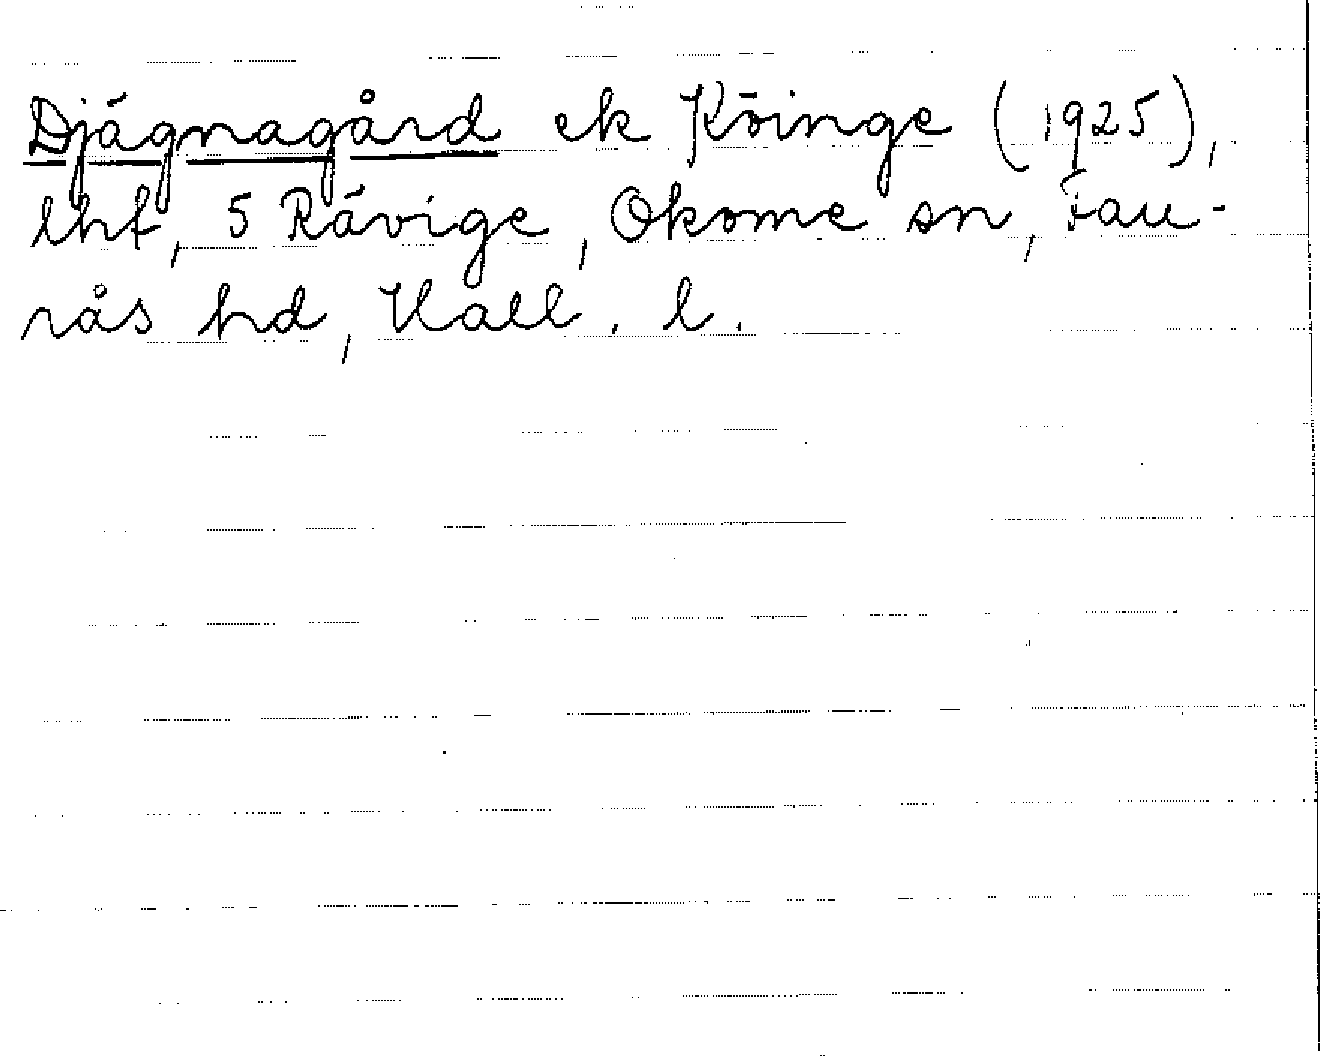 Djägnagård ek Köinge (1925),
lht, 5 Rävige, Okome sn, Fau-
rås hd, Hall. l.